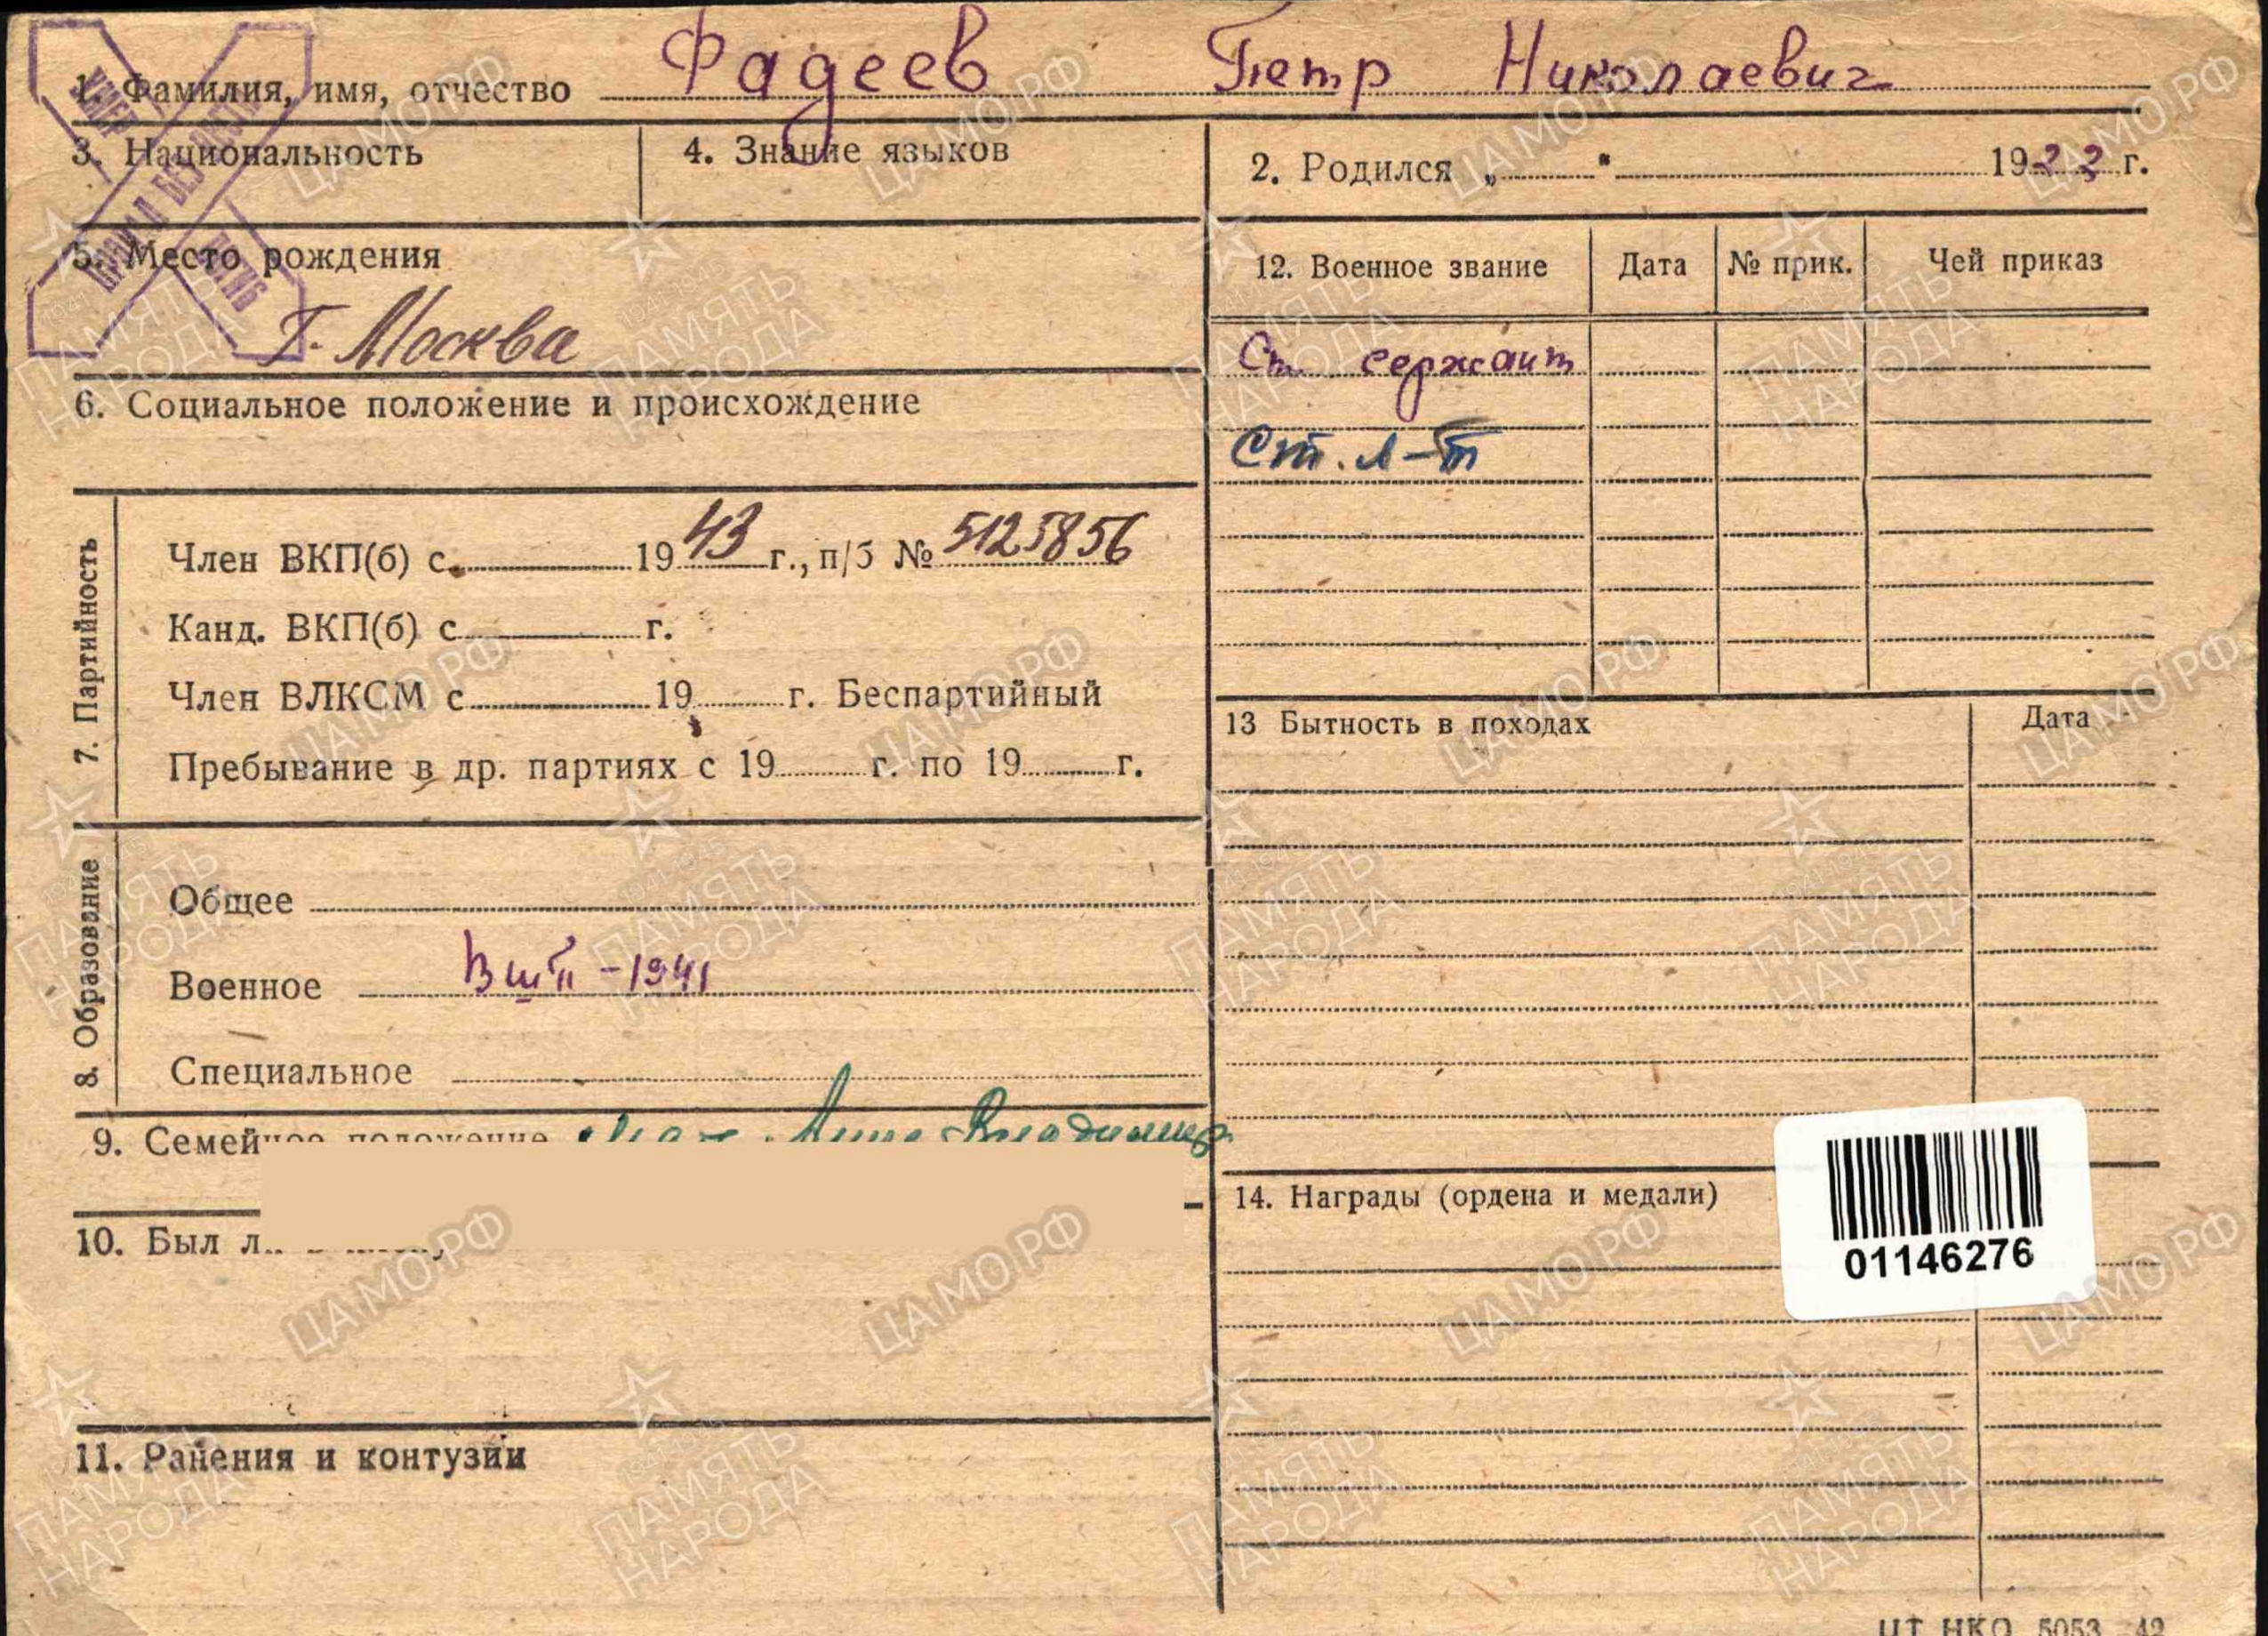 1. Фамилия, имя, отчество Фадеев Петр Николаевич
3. Национальность
4. Знание языков
2. Родился „ " 1922 г.
УМЕР
ПРОПАЛ БЕЗ ВЕСТИ
ПОГИБ
5. Место рождения
г. Москва
6. Социальное положение и происхождение
7. Партийность
Член ВКП(б) с 1943 г., п/б № 5125856
Канд. ВКП(б) с г.
Член ВЛКСМ с 19 г. Беспартийный
Пребывание в др. партиях с 19 г. по 19 г.
8. Образование
Общее
Военное ВШП - 1941
Специальное
9. Семейное положение Анна Владимир
10. Был ли
11. Ранения и контузии
12. Военное звание Дата № прик. Чей приказ
Ст. сержант
Ст. л-т
13 Бытность в походах Дата
14. Награды (ордена и медали)
01146276
ЦТ НКО 5053 42
ЦАМО.РФ
ПАМЯТЬ НАРОДА
1941-1945